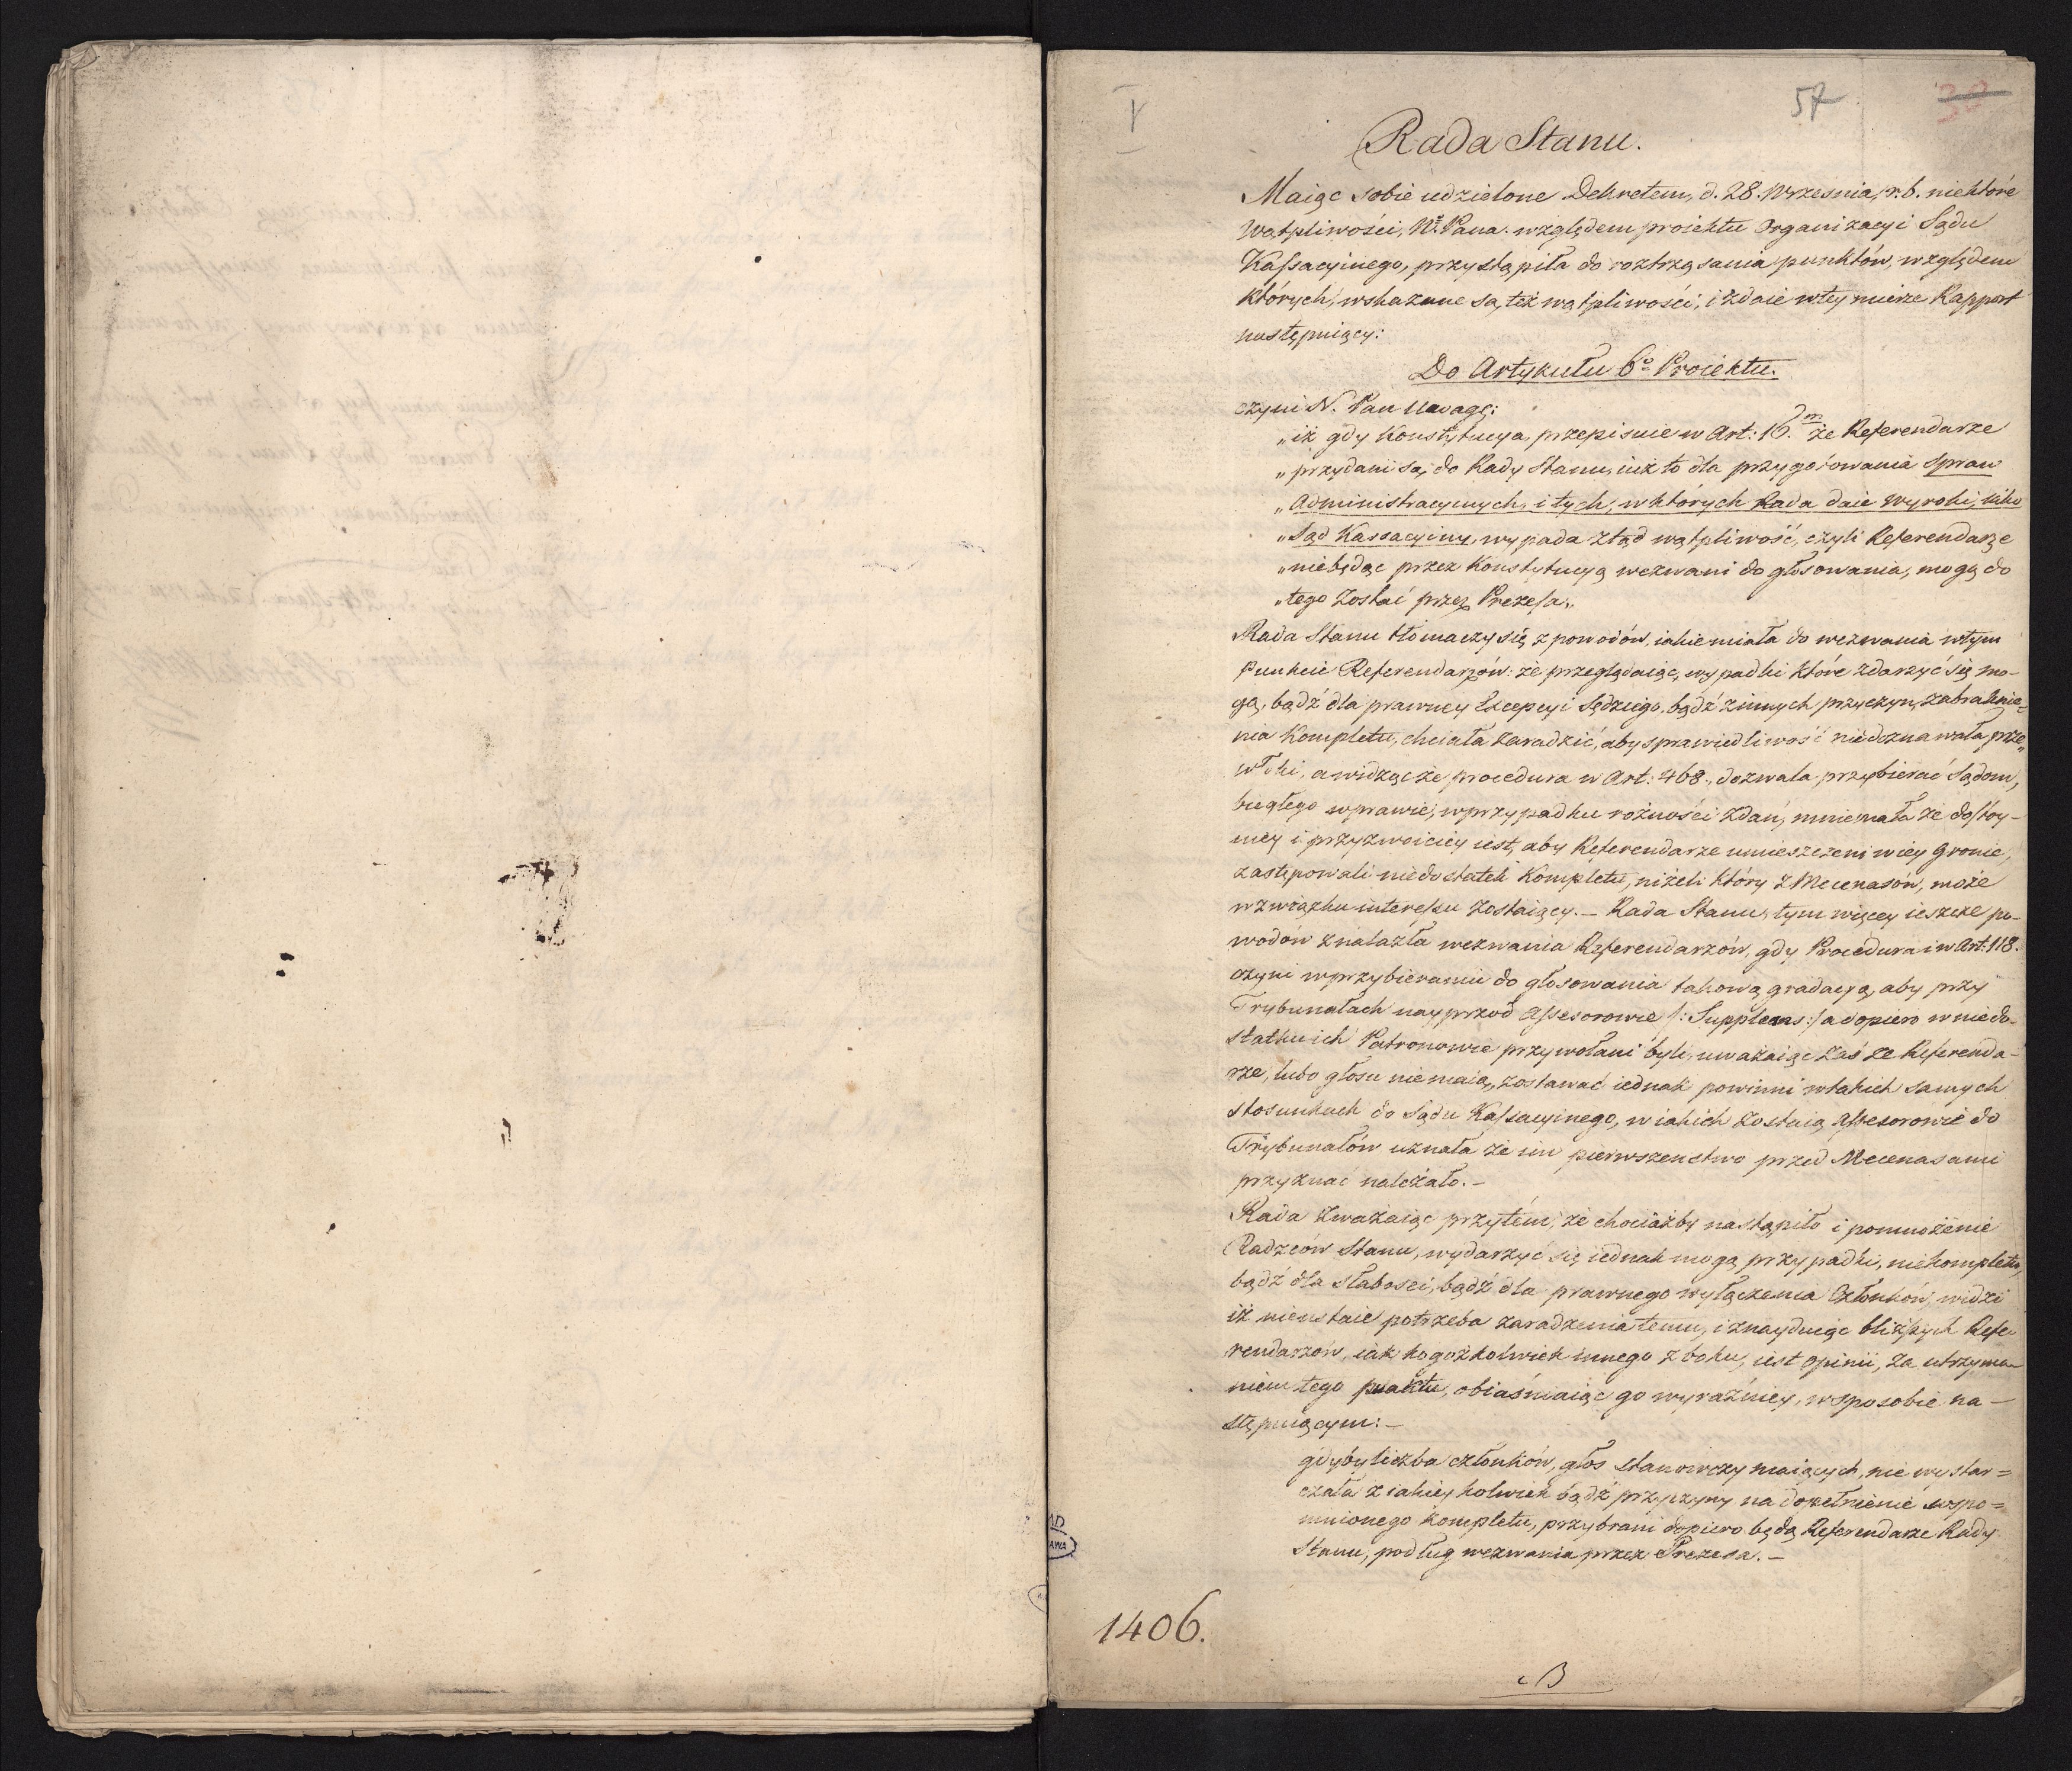 I
57
30
Rada Stanu.
Maiąc sobie udzielone Dekretem, d. 28. Września, r. b. niektóre
Wątpliwości, N. Pana względem proiektu Organizacyi Sądu
Kassacyinego, przystąpiła do roztrząsania punktów, względem
których, wskazane są też wątpliwości, i zdaie w tey mierze Rapport
następuiący:
Do Artykułu 6º Proiektu.
czyni N. Pan Uwagę:
„iż gdy Konstytucya, przepisuie w Art: 16.m że Referendarze
„przydani są, do Rady Stanu, iuż to dla przygotowania spraw
„Administracyinych, i tych, w których Rada daie wyroki, iako
„Sąd Kassacyiny, wypada ztąd wątpliwość, czyli Referendarze
„niebędąc przez Konstytucyą wezwani do głosowania, mogą do
„tego zostać przez Prezesa„
Rada Stanu tłomaczy się z powodów, iakie miała do wezwania w tym
Punkcie Referendarzów: że przeglądaiąc, wypadki które zdarzyć się mo-
gą, bądź dla prawney Excepcyi Sędziego, bądź z innych przyczyn, zabraknie-
nia Kompletu, chciała zaradzić, aby sprawiedliwość niedoznawała prze„
włoki, a widząc że procedura w Art: 468., dozwala przybierać Sądom,
biegłego w prawie, w przypadku rożności zdań, mniemała że dostoy-
niey i przyzwoiciey iest, aby Referendarze umieszczeni w iey Gronie,
zastępowali niedostatek Kompletu, niżeli który z Mecenasów, może
w związku interessu zostaiący. – Rada Stanu, tym więcey ieszcze po-
wodów znalazła wezwania Referendarzów, gdy Procedura i w Art: 118.
czyni w przybieraniu do głosowania takową gradacyą, aby przy
Trybunałach nayprzod Assesorowie /: Suppleans :/ a dopiero w niedo-
statku ich Patronowie przywołani byli, uważaiąc zaś że Referenda-
rze, lubo głosu nie maią, zostawać iednak powinni w takich samych
stosunkach do Sądu Kassacyinego, w iakich zostaią Assesorowie do
Trybunałów uznała że im pierwszenstwo przed Mecenasami
przyznać należało. –
Rada zważaiąc przytém, że chociażby nastąpiło i pomnożenie
Radzców Stanu, wydarzyć się iednak mogą przypadki, niekompletu,
bądź dla słabości, bądź dla prawnego wyłączenia Członków, widzi
iż nieustaie potrzeba zaradzenia temu, i znayduiąc bliższych Refe-
rendarzów, iak kogożkolwiek innego z boku, iest opinii, za utrzyma-
niem tego punktu, obiaśniaiąc go wyraźniey, w sposobie na-
stępuiącym: –
gdyby liczba członków, głos stanowczy maiących, nie wystar=
czała z iakieykolwiek bądź przyczyny na dopełnienie wspo=
mnionego kompletu, przybrani dopiero będą Referendarze Rady
Stanu, podług wezwania przez Prezesa. –
1406.
B